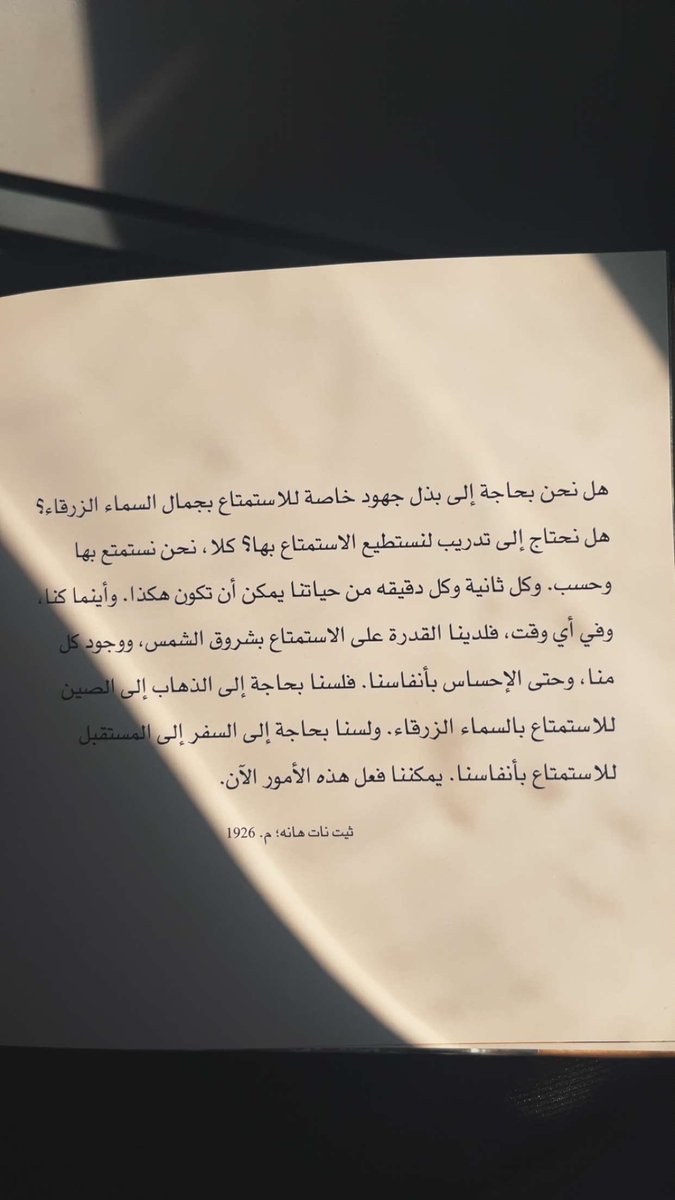 هل نحن بحاجة إلى بذل جهود خاصة للاستمتاع بجمال السماء الزرقاء؟
هل نحتاج إلى تدريب لنستطيع الاستمتاع بها؟ كلا، نحن نستمتع بها
وحسب. وكل ثانية وكل دقيقه من حياتنا يمكن أن تكون هكذا. وأينما كنا،
وفي أي وقت، فلدينا القدرة على الاستمتاع بشروق الشمس، ووجود كل
منا، وحتى الإحساس بأنفاسنا. فلسنا بحاجة إلى الذهاب إلى الصين
للاستمتاع بالسماء الزرقاء. ولسنا بحاجة إلى السفر إلى المستقبل
للاستمتاع بأنفاسنا. يمكننا فعل هذه الأمور الآن.
ثيت نات هانه؛ م. 1926